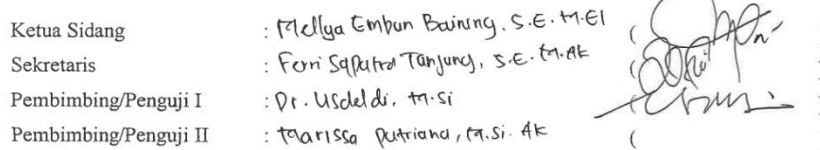 Ketua Sidang : Mellya Embun Baining, S.E. M.EI (
Sekretaris : Ferri Saputra Tanjung, S.E. M.Ak (
Pembimbing/Penguji I : Dr. Usdeldi, M.Si
Pembimbing/Penguji II : Marissa Putriana, M.Si. Ak (